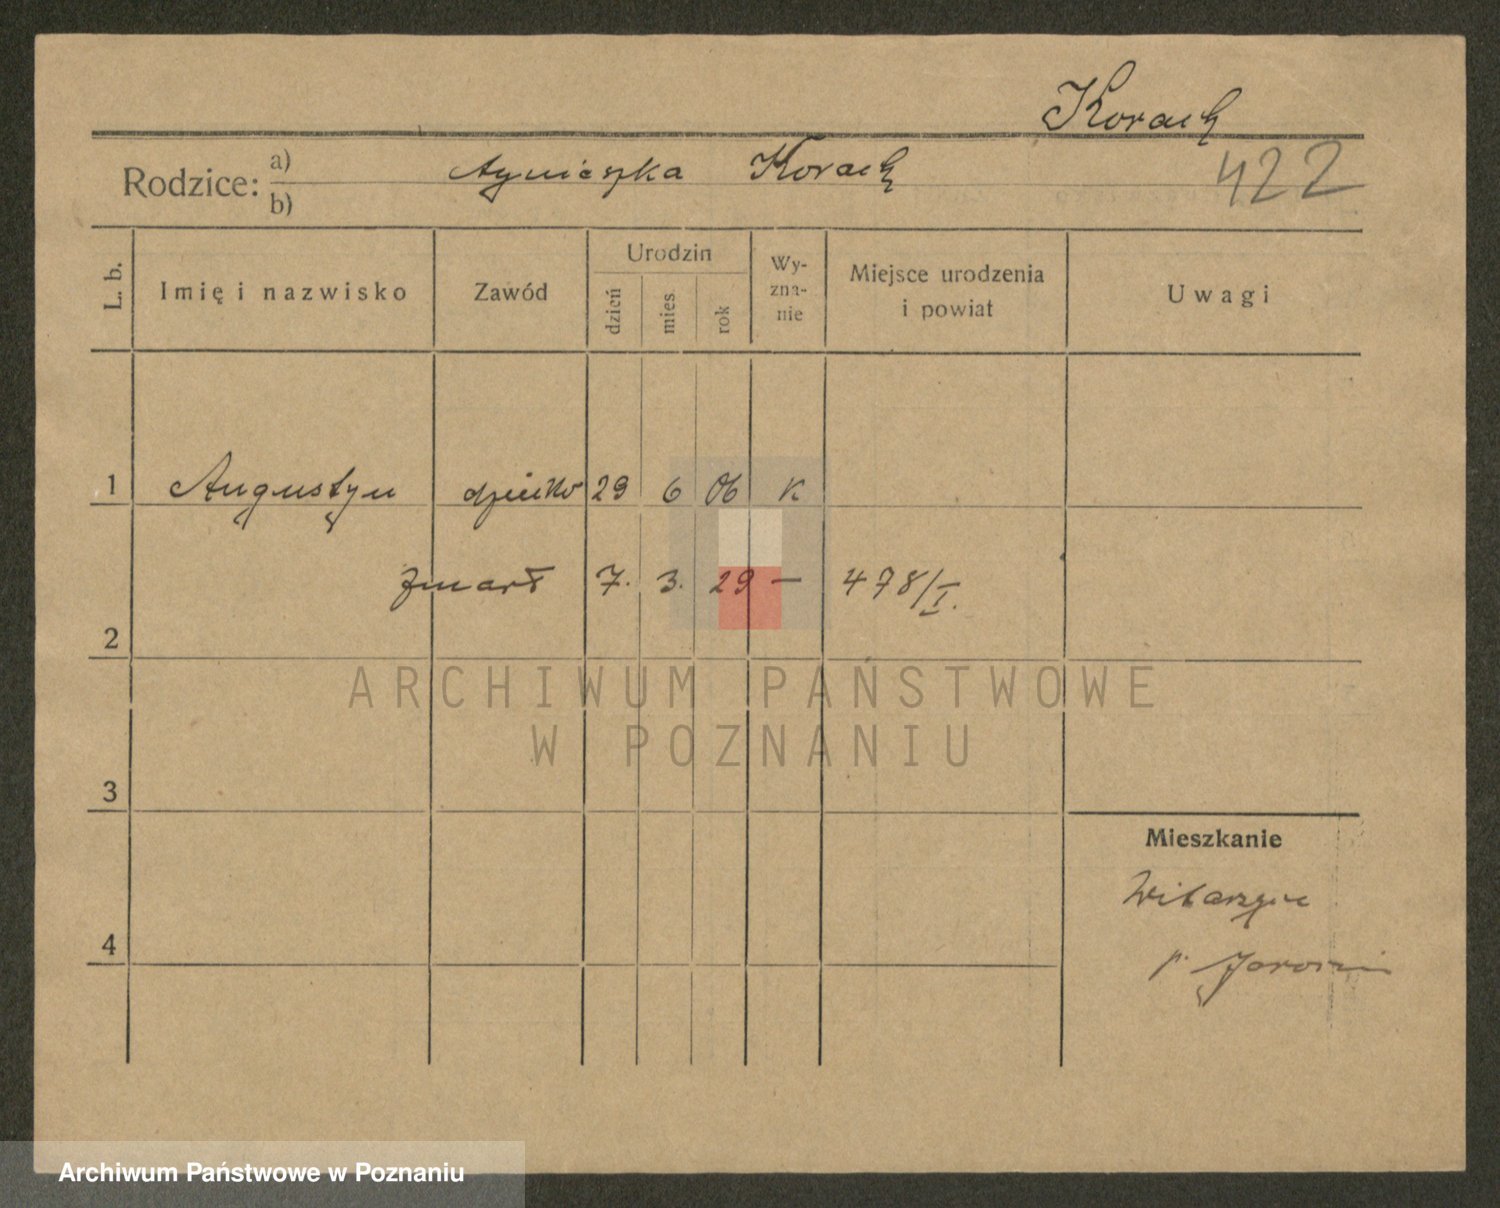 Korach
Rodzice: a) Agnieszka Korach
b)
422
L. b.
Imię i nazwisko
Zawód
Urodzin
dzień
mies
rok
Wy-
zna-
nie
Miejsce urodzenia
i powiat
Uwagi
1 Augustyn dziecko 29 6 06 K
zmarł 7. 3. 29 — 478/I.
2
ARCHIWUM PAŃSTWOWE
W POZNANIU
3
Mieszkanie
Witaszyce
4
p. Jarocin
Archiwum Państwowe w Poznaniu